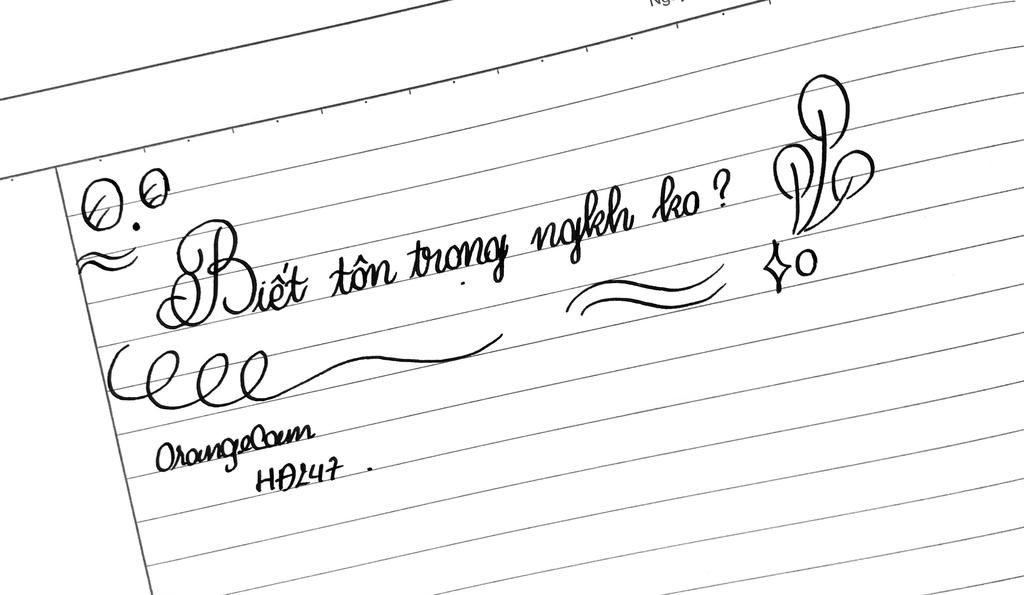 Biết tôn trọng ngkh ko?
OrangeCam
HĐ247.